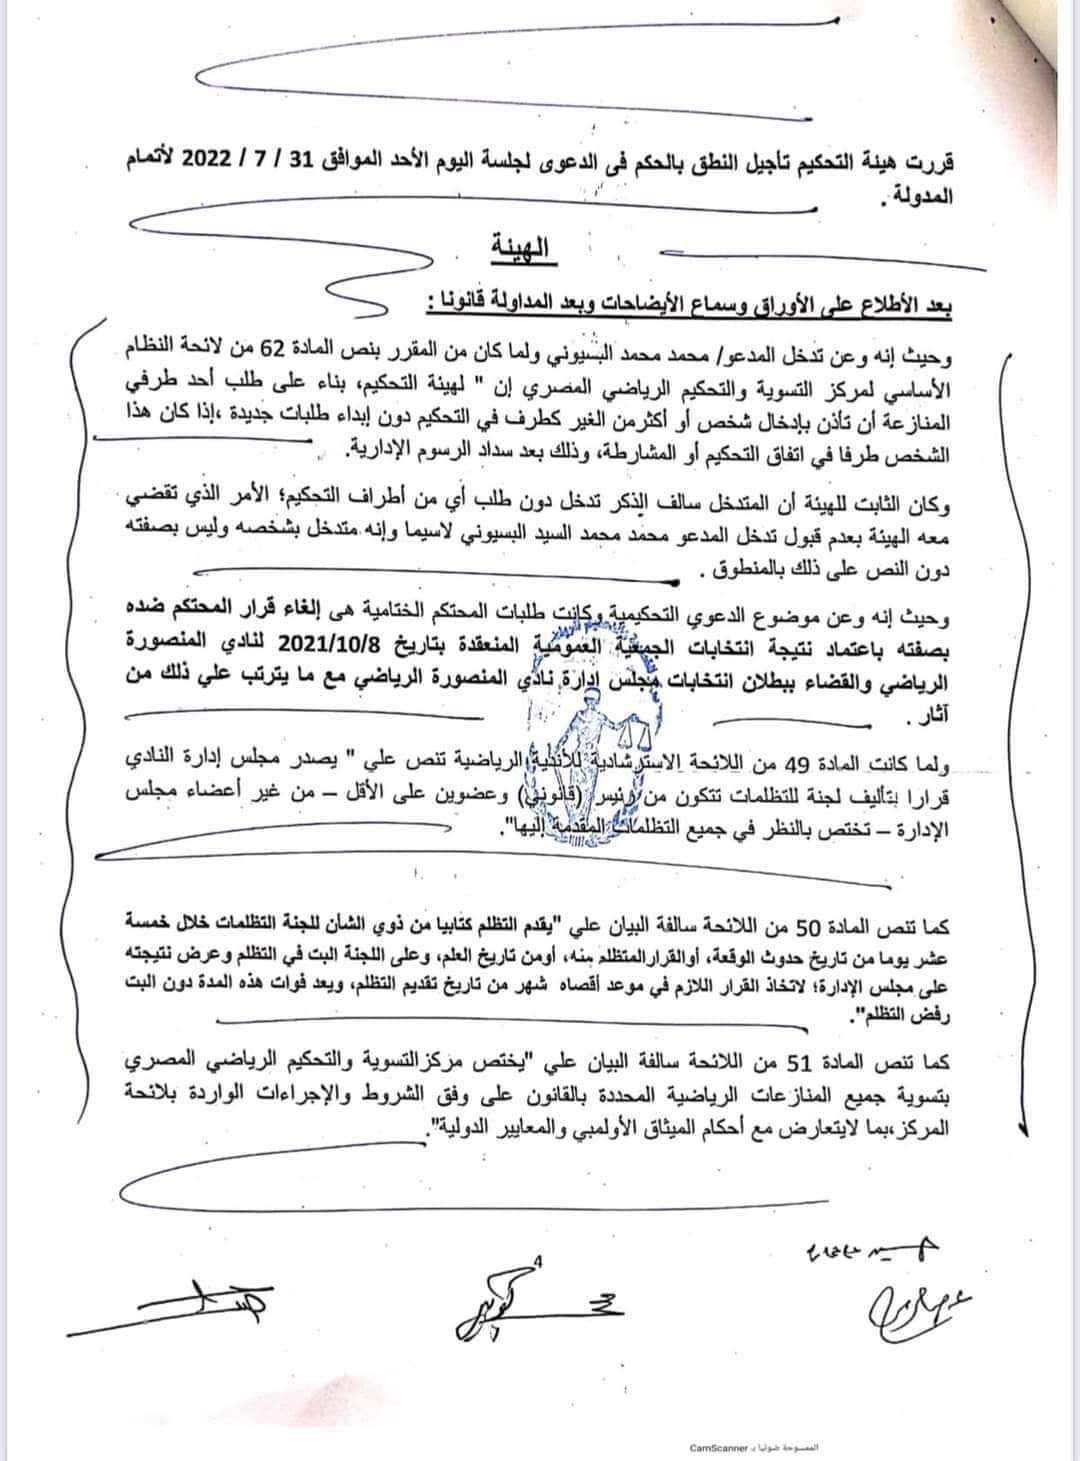 قررت هيئة التحكيم تأجيل النطق بالحكم فى الدعوى لجلسة اليوم الأحد الموافق 31 / 7 / 2022 لأتمام
المدولة .
الهيئة
بعد الأطلاع على الأوراق وسماع الأيضاحات وبعد المداولة قانونا :
وحيث إنه وعن تدخل المدعو/ محمد محمد البسيوني ولما كان من المقرر بنص المادة 62 من لائحة النظام
الأساسي لمركز التسوية والتحكيم الرياضي المصري إن " لهيئة التحكيم، بناء على طلب أحد طرفي
المنازعة أن تأذن بإدخال شخص أو أكثرمن الغير كطرف في التحكيم دون إبداء طلبات جديدة ،إذا كان هذا
الشخص طرفا في اتفاق التحكيم أو المشارطة، وذلك بعد سداد الرسوم الإدارية.
وكان الثابت للهيئة أن المتدخل سالف الذكر تدخل دون طلب أي من أطراف التحكيم؛ الأمر الذي تقضي
معه الهيئة بعدم قبول تدخل المدعو محمد محمد السيد البسيوني لاسيما وإنه متدخل بشخصه وليس بصفته
دون النص على ذلك بالمنطوق .
وحيث إنه وعن موضوع الدعوي التحكيمية وكانت طلبات المحتكم الختامية هى إلغاء قرار المحتكم ضده
بصفته باعتماد نتيجة انتخابات الجمعية العمومية المنعقدة بتاريخ 2021/10/8 لنادي المنصورة
الرياضي والقضاء ببطلان انتخابات مجلس إدارة نادي المنصورة الرياضي مع ما يترتب علي ذلك من
آثار .
ولما كانت المادة 49 من اللائحة الاسترشادية للأندية الرياضية تنص علي " يصدر مجلس إدارة النادي
قرارا بتأليف لجنة للتظلمات تتكون من رئيس (قانوني) وعضوين على الأقل – من غير أعضاء مجلس
الإدارة – تختص بالنظر في جميع التظلمات المقدمة إليها".
كما تنص المادة 50 من اللائحة سالفة البيان علي "يقدم التظلم كتابيا من ذوي الشأن للجنة التظلمات خلال خمسة
عشر يوما من تاريخ حدوث الوقعة، أوالقرارالمتظلم منه، أومن تاريخ العلم، وعلى اللجنة البت في التظلم وعرض نتيجته
على مجلس الإدارة؛ لاتخاذ القرار اللازم في موعد أقصاه شهر من تاريخ تقديم التظلم، ويعد فوات هذه المدة دون البت
رفض التظلم".
كما تنص المادة 51 من اللائحة سالفة البيان علي "يختص مركزالتسوية والتحكيم الرياضي المصري
بتسوية جميع المنازعات الرياضية المحددة بالقانون على وفق الشروط والإجراءات الواردة بلائحة
المركز ،بما لايتعارض مع أحكام الميثاق الأولمبي والمعايير الدولية".
الممسوحة ضوئيا بـ CamScanner